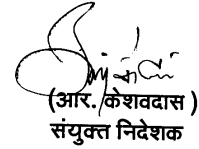 (आर. केशवदास)
संयुक्त निदेशक